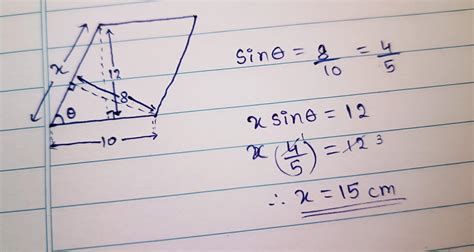 x
12
8
θ
10
sinθ = 8/10 = 4/5
x sinθ = 12
x (4/5) = 12 3
∴ x = 15 cm